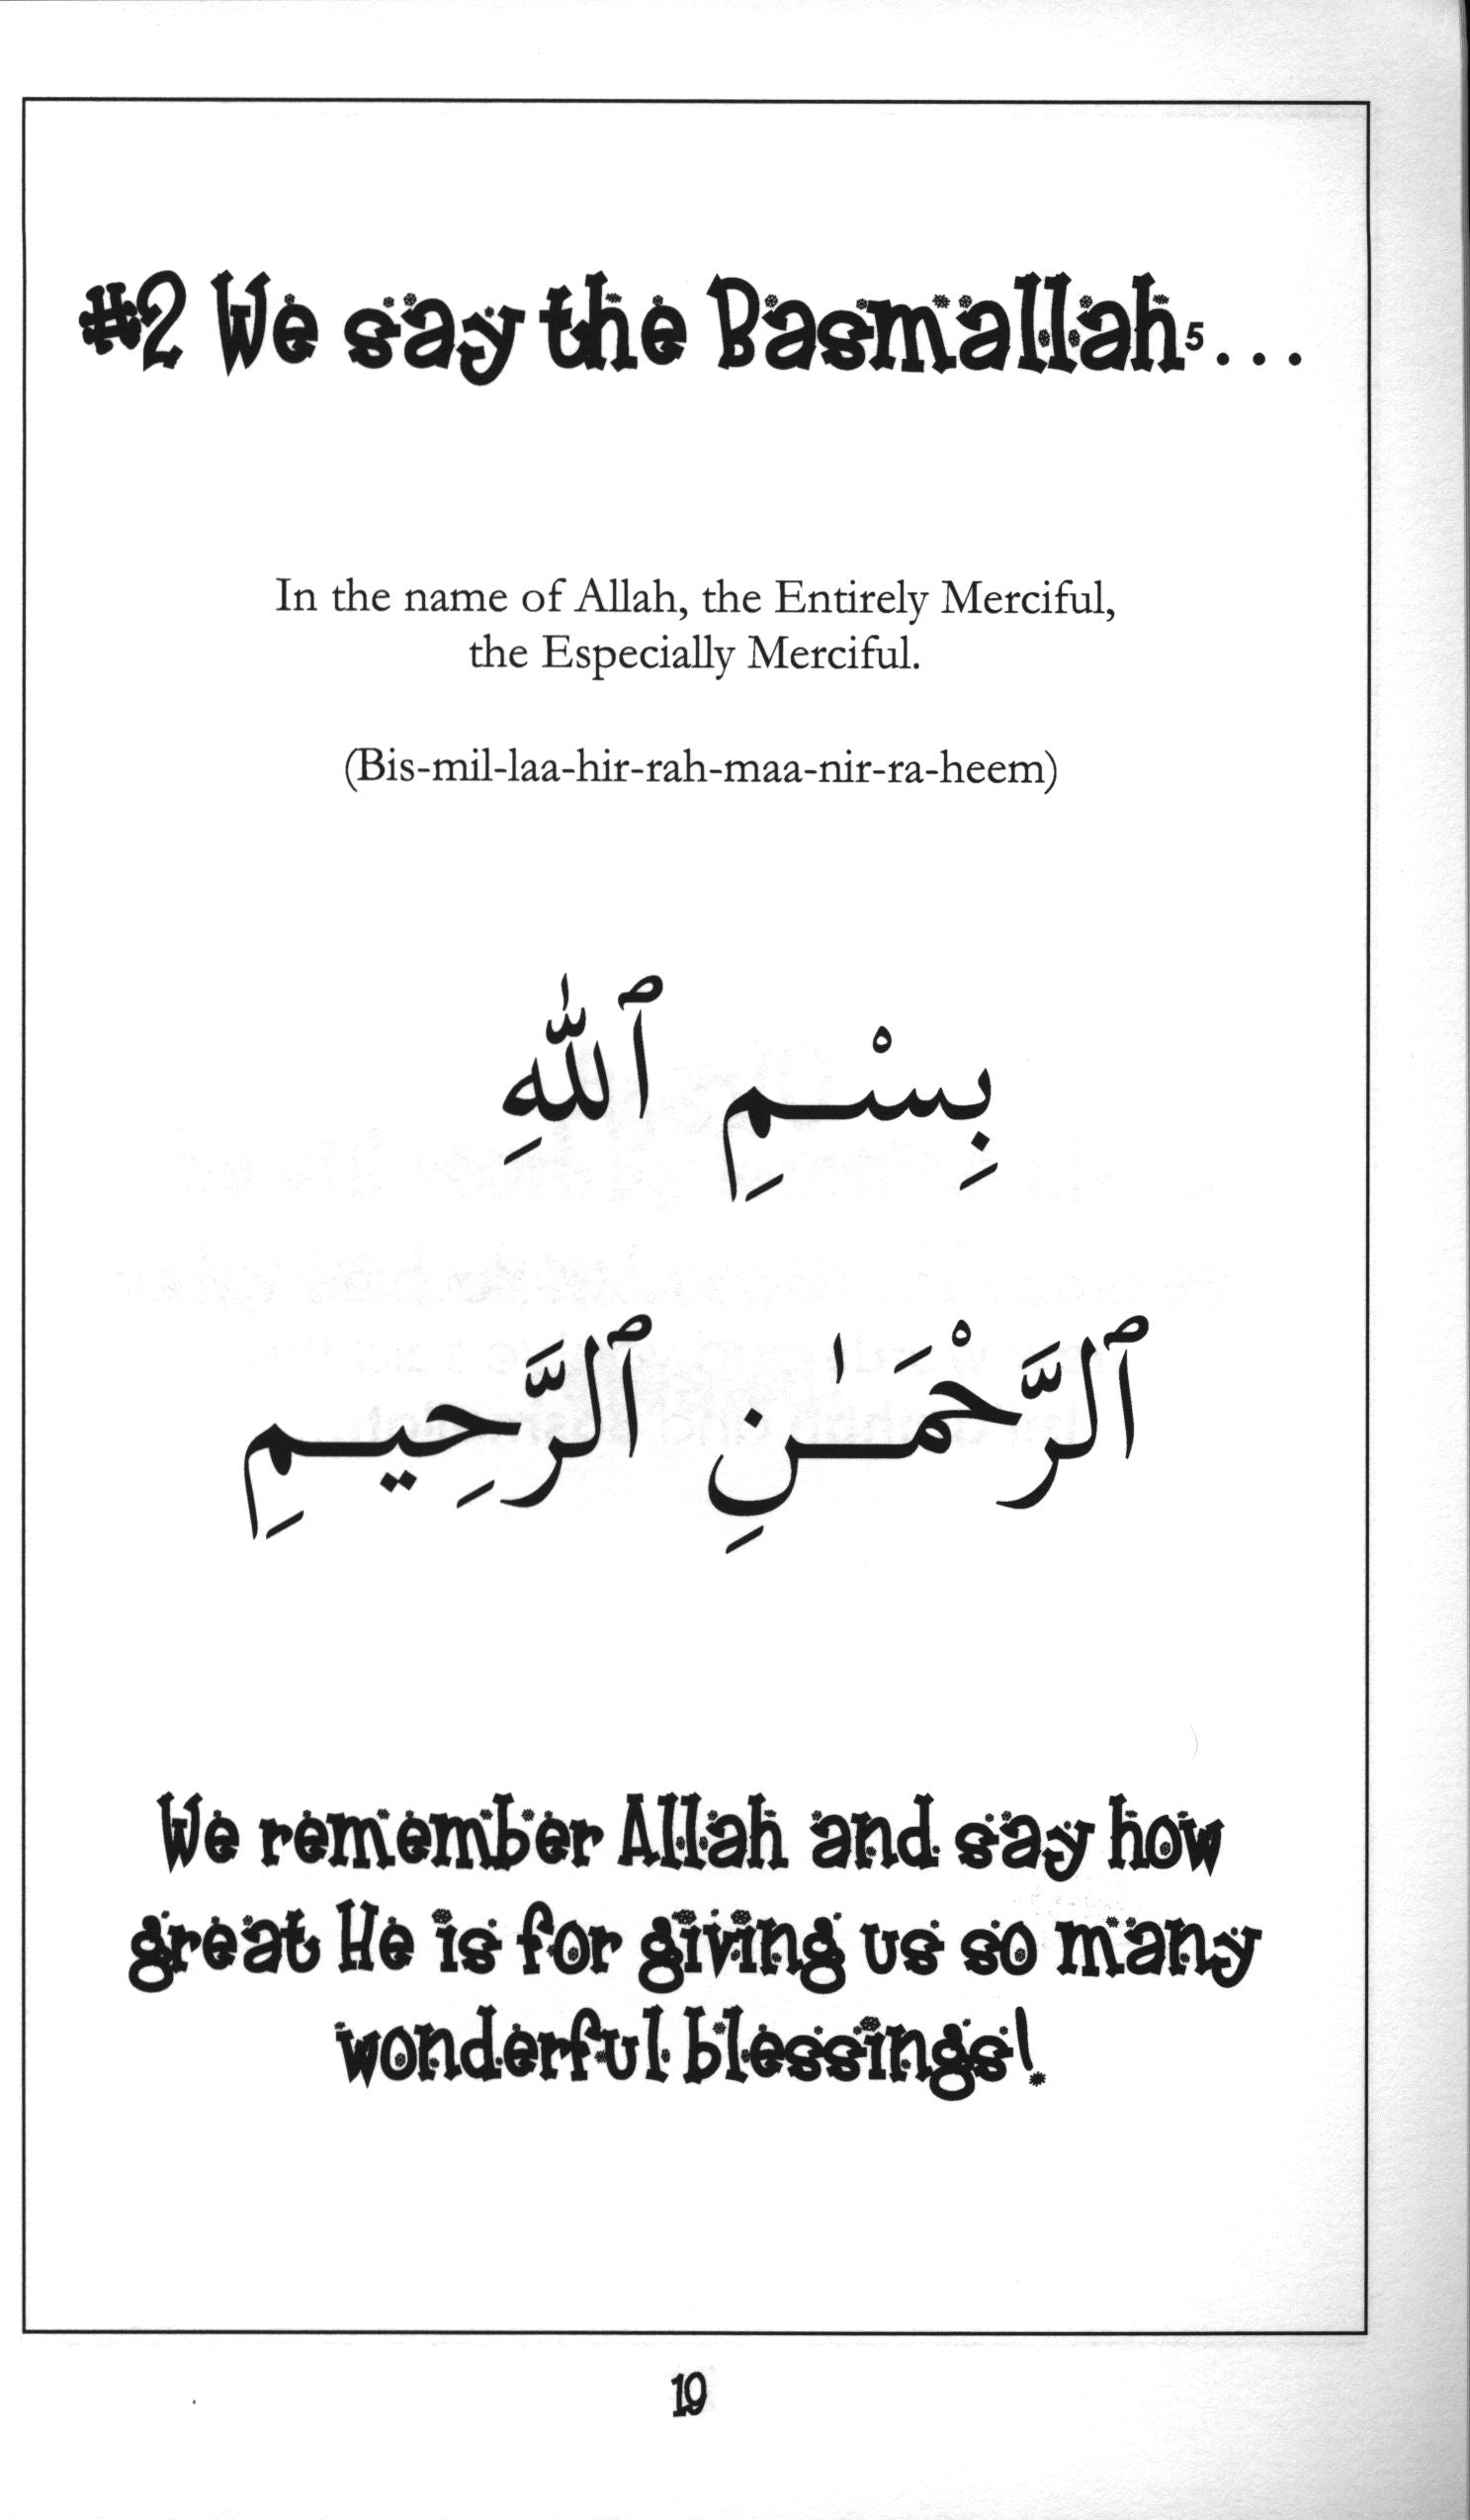 #2 We say the Basmallah5...
In the name of Allah, the Entirely Merciful,
the Especially Merciful.
(Bis-mil-laa-hir-rah-maa-nir-ra-heem)
بِسْمِ ٱللَّهِ
ٱلرَّحْمَـٰنِ ٱلرَّحِيمِ
We remember Allah and say how
great He is for giving us so many
wonderful blessings!
19